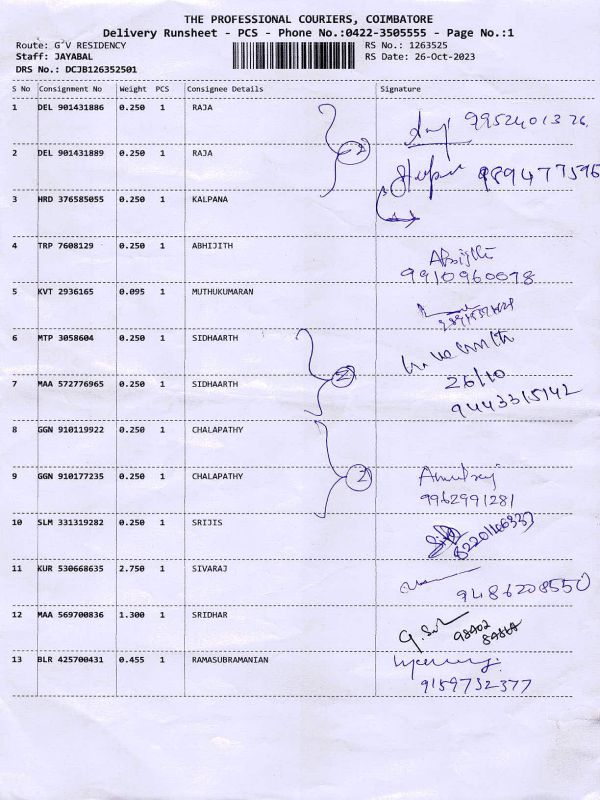 THE PROFESSIONAL COURIERS, COIMBATORE
Delivery Runsheet - PCS - Phone No.:0422-3505555 - Page No.:1
Route: G V RESIDENCY
RS No.: 1263525
Staff: JAYABAL
RS Date: 26-Oct-2023
DRS No.: DCJB126352501
S No Consignment No Weight PCS Consignee Details Signature
1 DEL 901431886 0.250 1 RAJA 9952401326
2 DEL 901431889 0.250 1 RAJA 2 9894777596
3 HRD 376585055 0.250 1 KALPANA
4 TRP 7608129 0.250 1 ABHIJITH Abijith
9910960098
5 KVT 2936165 0.095 1 MUTHUKUMARAN
6 MTP 3058604 0.250 1 SIDHAARTH
7 MAA 572776965 0.250 1 SIDHAARTH 2 26/10
9443315142
8 GGN 910119922 0.250 1 CHALAPATHY
9 GGN 910177235 0.250 1 CHALAPATHY 2
9962991281
10 SLM 331319282 0.250 1 SRIJIS
11 KUR 530668635 2.750 1 SIVARAJ 9486208550
12 MAA 569700836 1.300 1 SRIDHAR 98402
13 BLR 425700431 0.455 1 RAMASUBRAMANIAN
9159732377